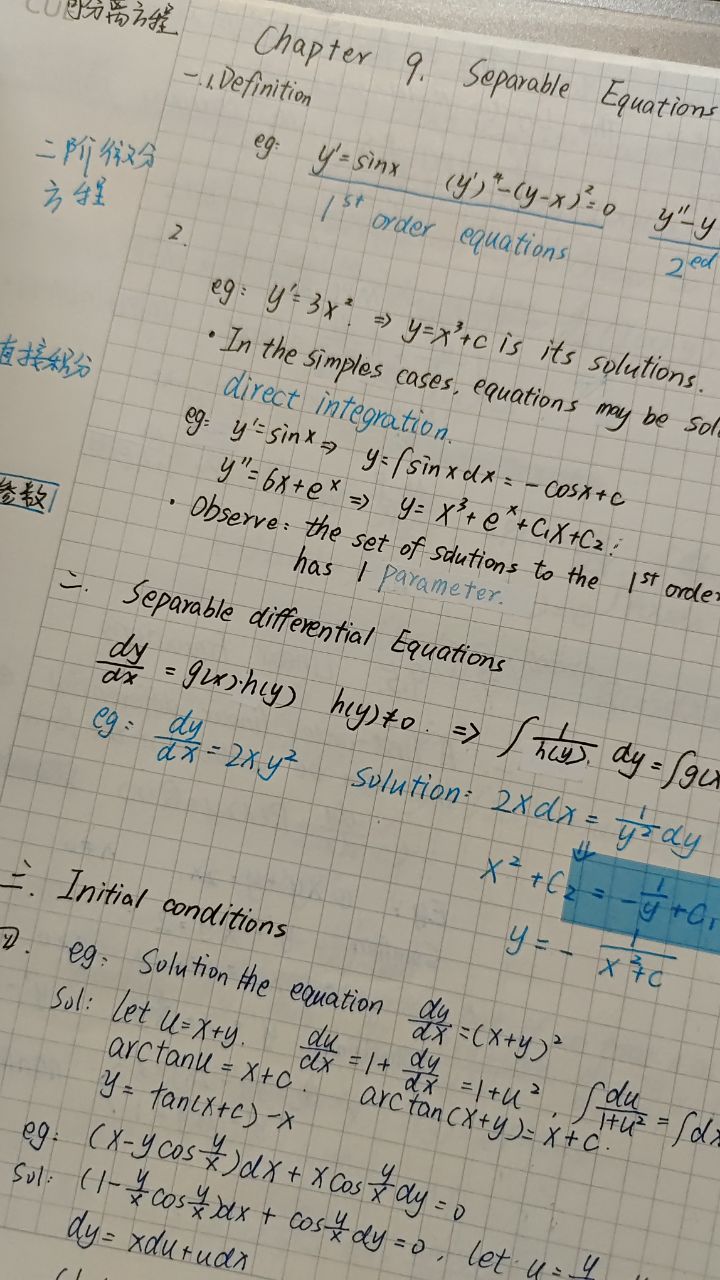 可分离方程
Chapter 9. Separable Equations
一.1.Definition
eg: y'=sinx (y')⁴-(y-x)²=0 y''-y
二阶微分
方程
1st order equations 2ed
2.
eg: y'=3x². ⇒ y=x³+c is its solutions.
• In the simples cases, equations may be sol
直接积分
direct integration.
eg: y'=sinx ⇒ y=∫sinxdx=-cosx+c
y''=6x+eˣ ⇒ y=x³+eˣ+C₁x+C₂;
参数
• Observe: the set of solutions to the 1st order
has 1 parameter.
二. Separable differential Equations
dy/dx = g(x)·h(y) h(y)≠0. ⇒ ∫1/h(y). dy=∫g(x
eg: dy/dx=2x.y² Solution: 2xdx=1/y² dy
⇓
x²+C₂=-1/y+C₁
y=-1/x²+c
三. Initial conditions
eg: Solution the equation dy/dx=(x+y)²
Sol: Let u=x+y. du/dx=1+dy/dx=1+u², ∫du/1+u²=∫dx
arctanu=x+c. arctan(x+y)=x+c.
y=tan(x+c)-x
eg: (x-ycos y/x)dx+xcos y/x dy=0
Sol: (1-y/x cos y/x)dx+cos y/x dy=0, let u=y
dy=xdu+udx